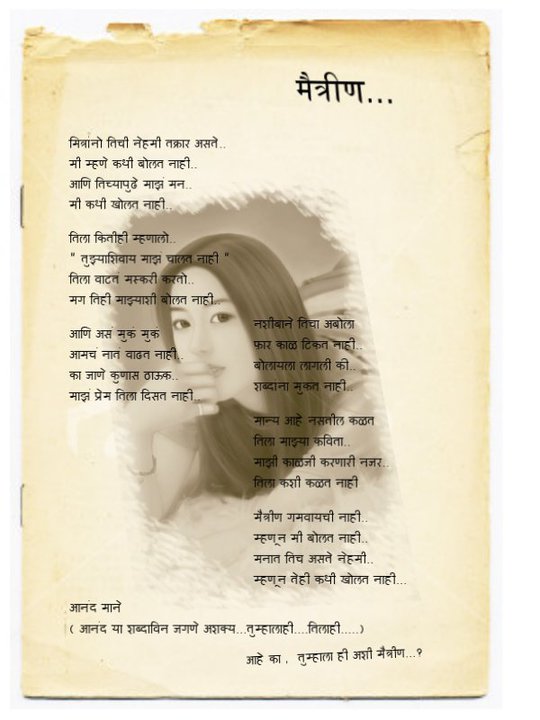 मैत्रीण...
मित्रांनो तिची नेहमी तक्रार असते..
मी म्हणे कधी बोलत नाही..
आणि तिच्यापुढे माझं मन..
मी कधी खोलत नाही..
तिला कितीही म्हणालो..
" तुझ्याशिवाय माझं चालत नाही "
तिला वाटतं मस्करी करतो..
मग तिही माझ्याशी बोलत नाही..
आणि असं मुकं मुकं
आमचं नातं वाढत नाही..
का जाणे कुणास ठाऊक..
माझं प्रेम तिला दिसत नाही..
नशीबाने तिचा अबोला
फार काळ टिकत नाही..
बोलायला लागली की..
शब्दांना मुकत नाही..
मान्य आहे नसतील कळत
तिला माझ्या कविता..
माझी काळजी करणारी नजर..
तिला कशी कळत नाही
मैत्रीण गमवायची नाही..
म्हणून मी बोलत नाही..
मनात तिच असते नेहमी..
म्हणून तेही कधी खोलत नाही...
आनंद माने
( आनंद या शब्दाविन जगणे अशक्य...तुम्हालाही....तिलाही.....)
आहे का , तुम्हाला ही अशी मैत्रीण...?